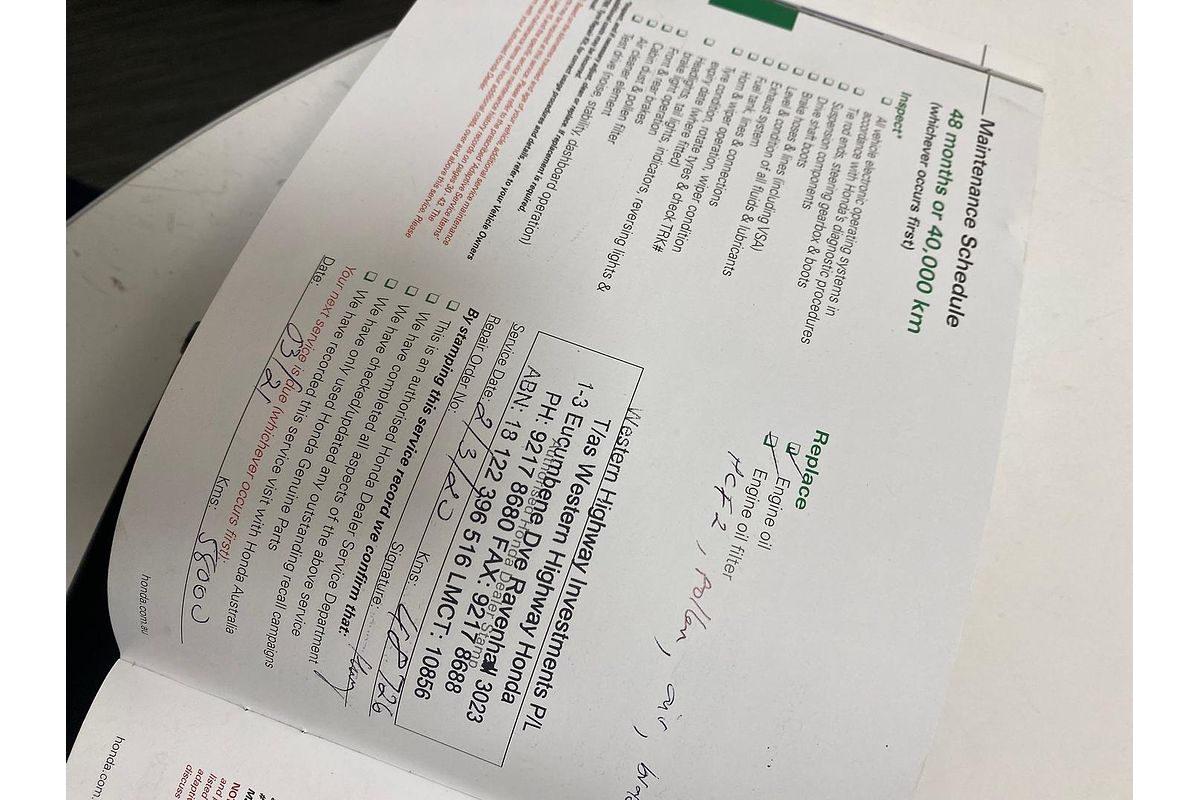 Maintenance Schedule
48 months or 40,000 km
(whichever occurs first)
Inspect*
All vehicle electronic operating systems in
accordance with Honda's diagnostic procedures
Tie rod ends, steering gearbox & boots
Suspension components
Drive shaft boots
Brake hoses & lines (including VSA)
Level & condition of all fluids & lubricants
Exhaust system
Fuel tank, lines & connections
Horn & wiper operation
Tyre condition, rotate tyres & check TRK#
expiry date (where fitted)
Headlights, tail lights, indicators, reversing lights &
brake light operation
Front & rear brakes
Cabin dust & pollen filter
Air cleaner element
Test drive (noise, stability, dashboard operation)
Replace
Engine oil
Engine oil filter
HCF2, Pollen, air,
Western Highway Investments P/L
T/as Western Highway Honda
1-3 Eucumbene Dve Ravenhall 3023
PH: 9217 8680 FAX: 9217 8688
ABN: 18 122 396 516 LMCT: 10856
Authorised Honda Dealer Stamp
Service Date: 2/3/20 Kms: 48726
Repair Order No: Signature:
By stamping this service record we confirm that:
This is an authorised Honda Dealer Service Department
We have completed all aspects of the above service
We have checked/updated any outstanding recall campaigns
We have only used Honda Genuine Parts
We have recorded this service visit with Honda Australia
Your next service is due (whichever occurs first):
Date: 03/21 Kms: 58000
honda.com.au
honda.com.